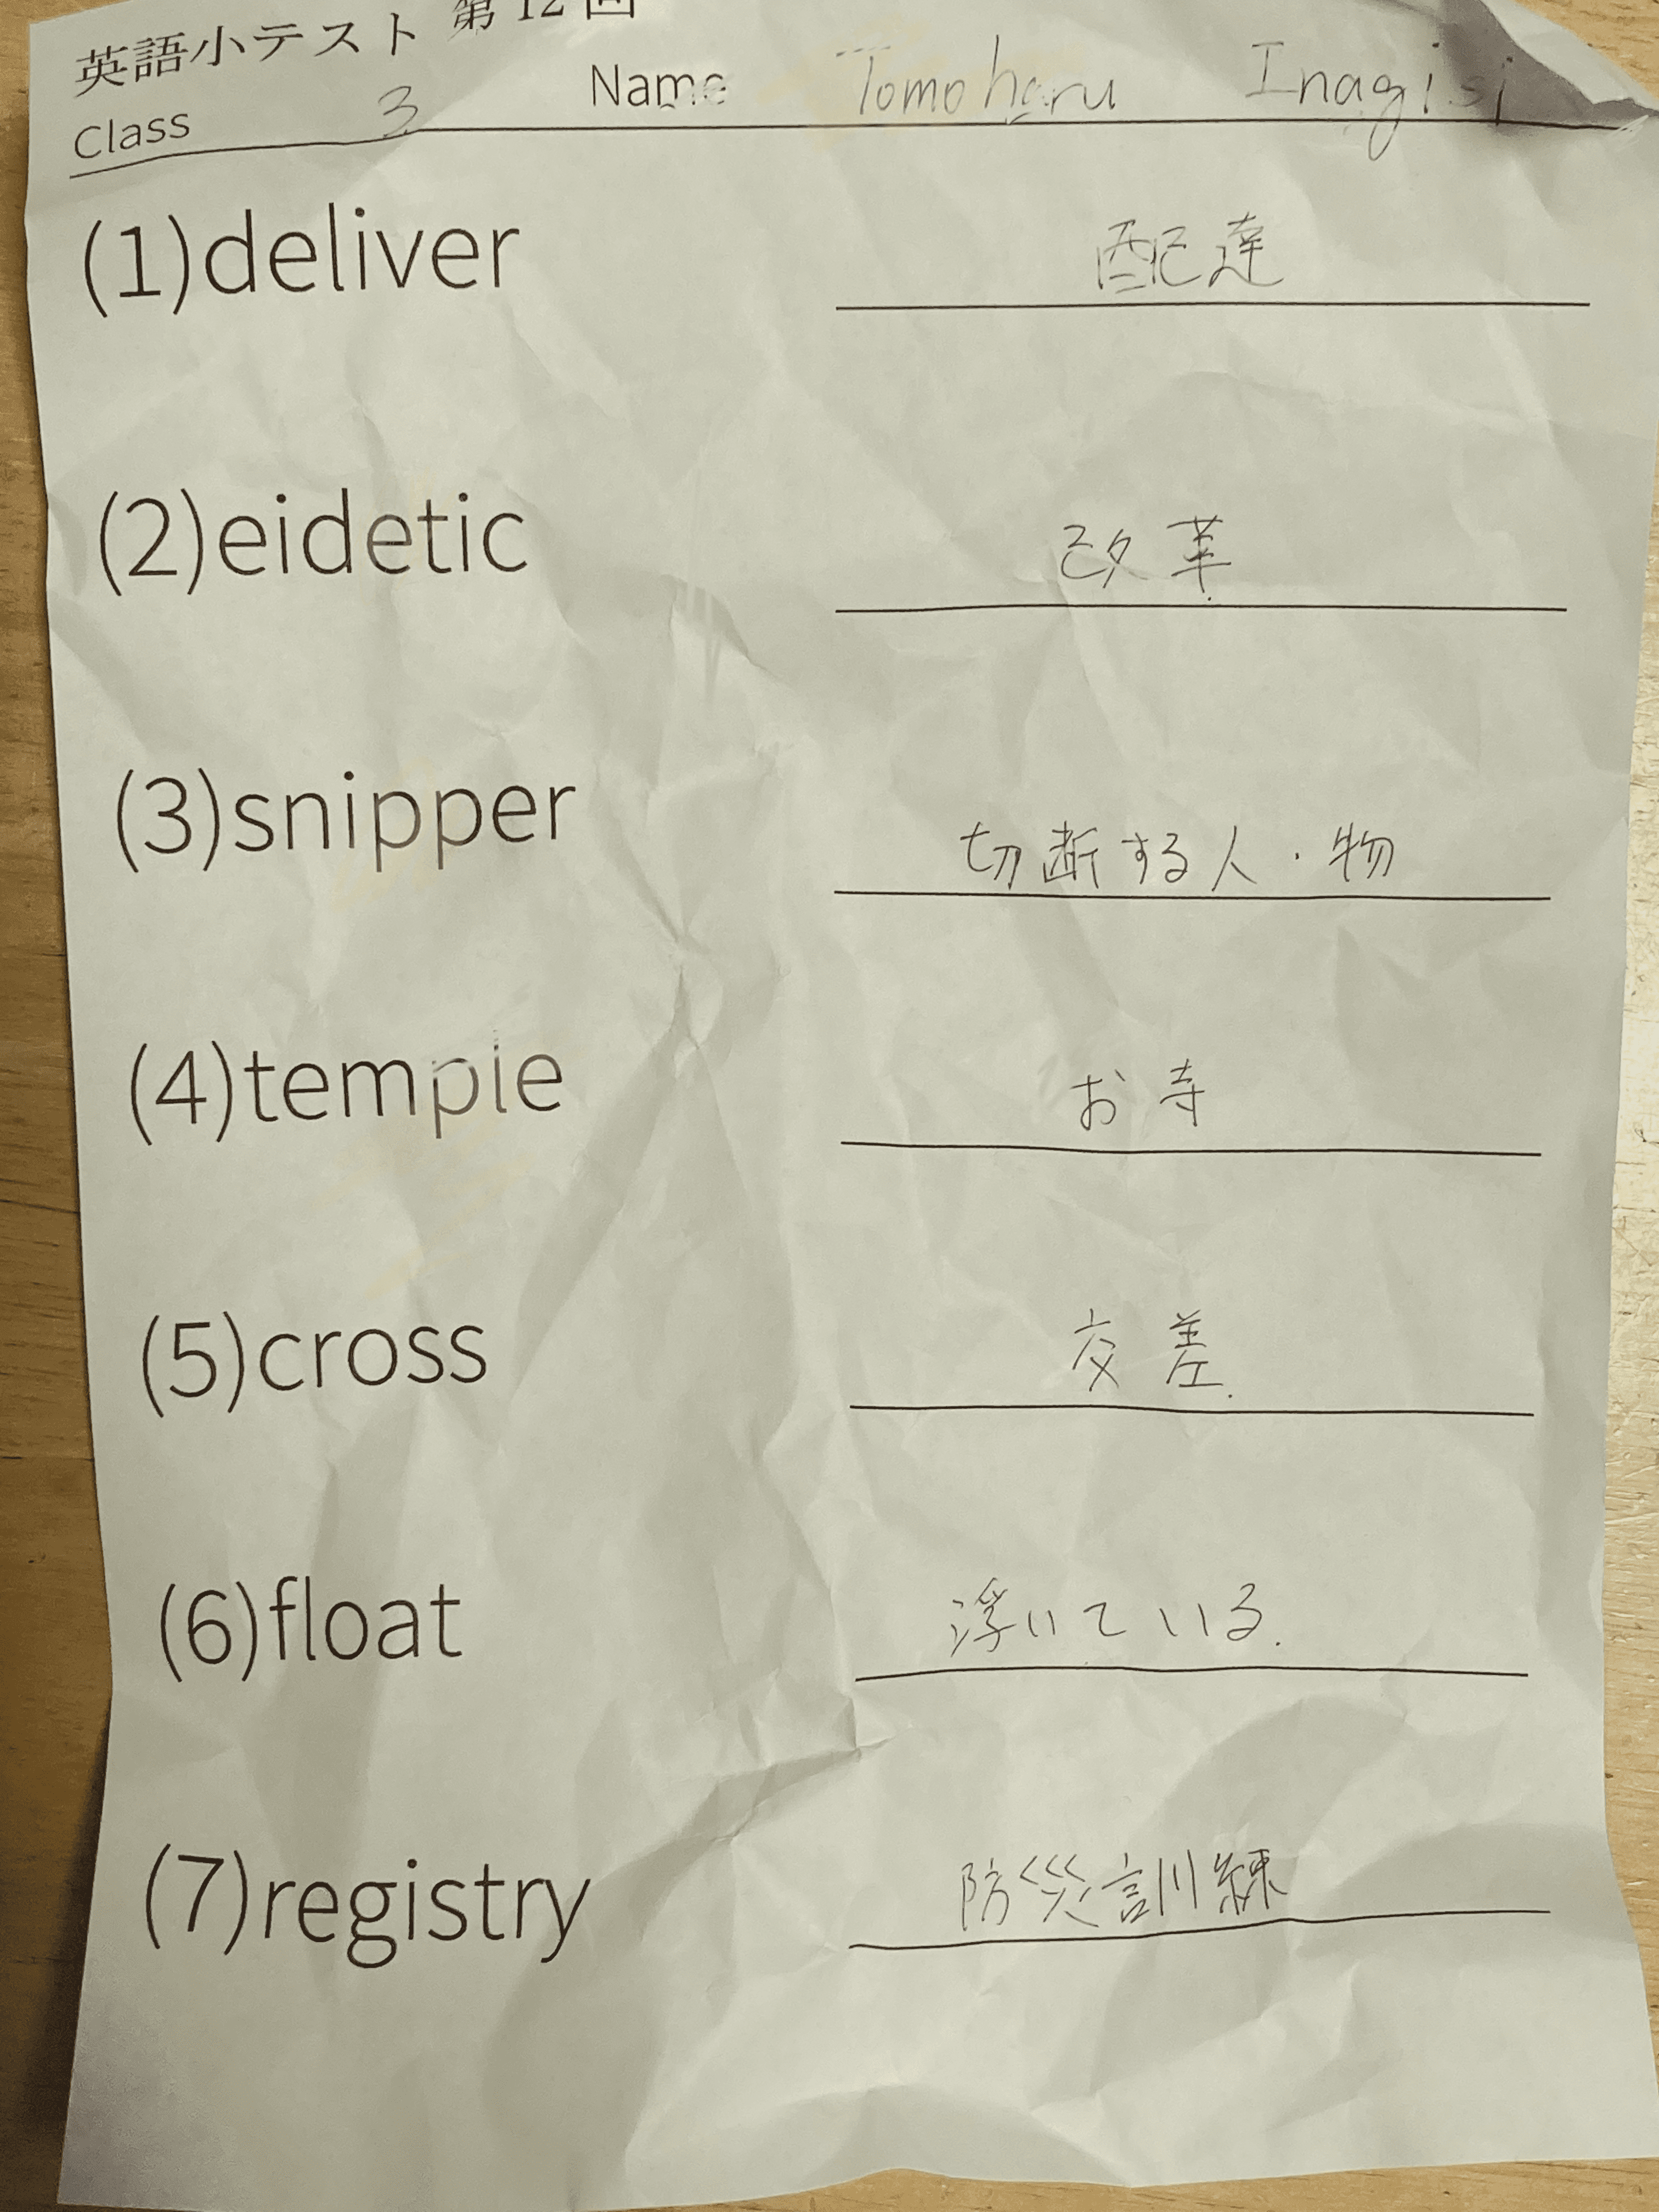 英語小テスト 第12回
Class 3 Name Tomoharu Inagisi
(1)deliver 配達
(2)eidetic 改革
(3)snipper 切断する人・物
(4)temple お寺
(5)cross 交差
(6)float 浮いている.
(7)registry 防災訓練